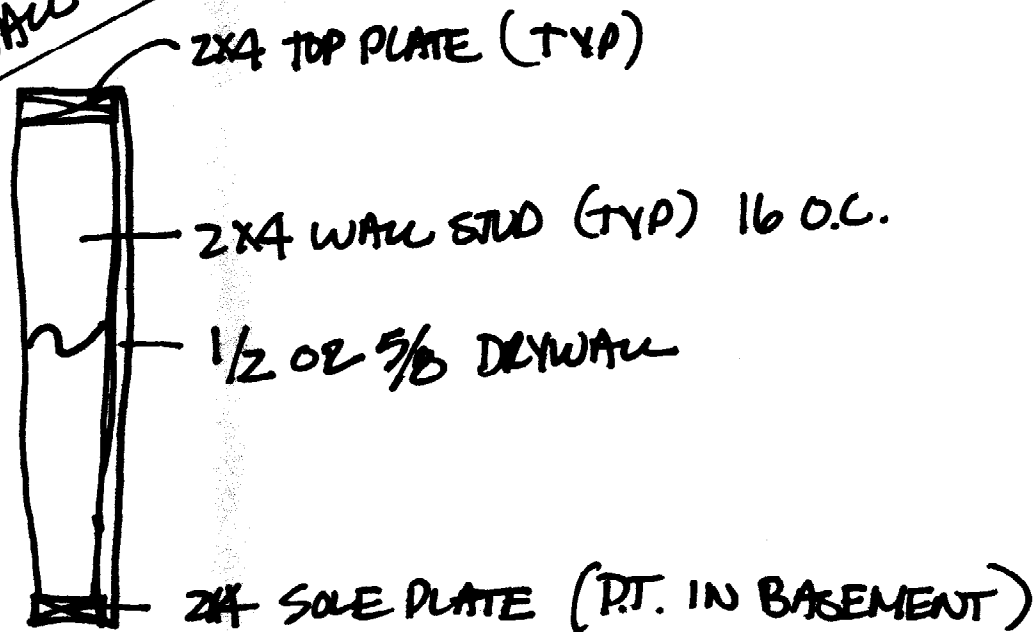 2X4 TOP PLATE (TYP)
2X4 WALL STUD (TYP) 16 O.C.
1/2 OR 5/8 DRYWALL
2X4 SOLE PLATE (P.T. IN BASEMENT)